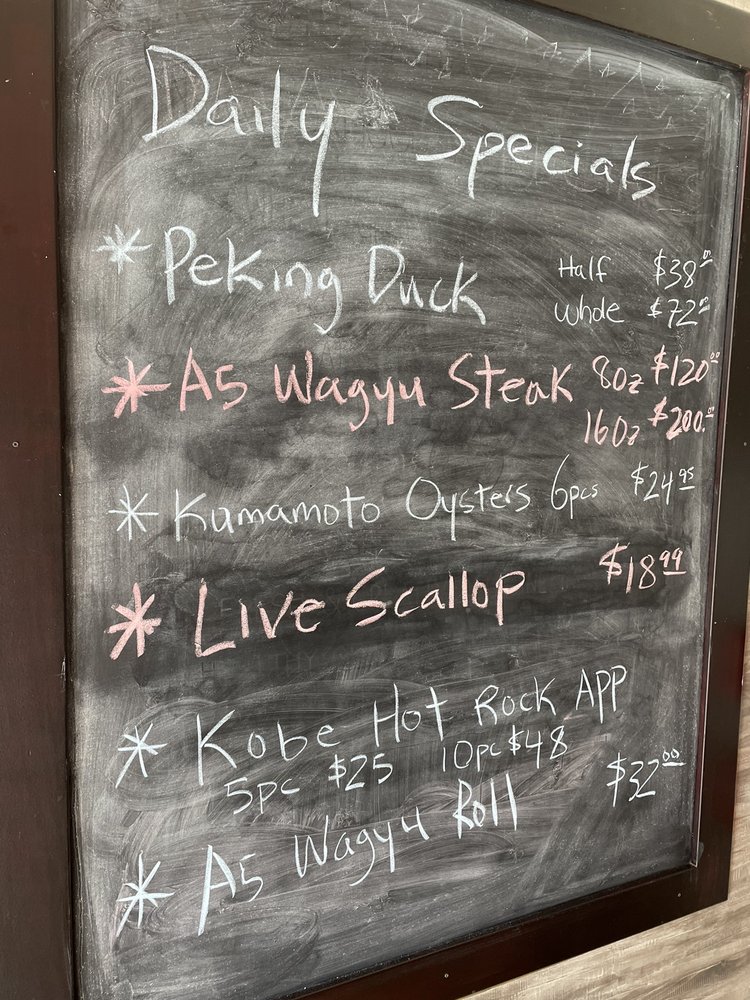 Daily Specials
* Peking Duck Half $38.00
Whole $72.00
* A5 Wagyu Steak 8oz $120.00
16oz $200.00
* Kumamoto Oysters 6pcs $24.95
* Live Scallop $18.99
* Kobe Hot Rock APP
5pc $25 10pc $48
* A5 Wagyu Roll $32.00